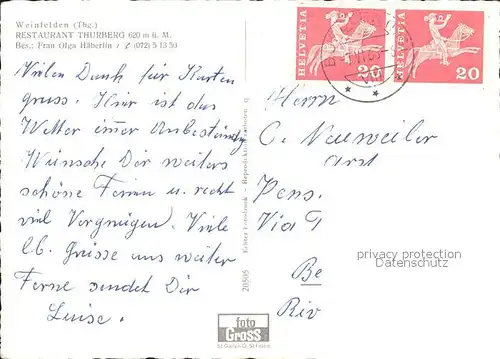 Weinfelden (Thg.)
RESTAURANT THURBERG 620 m ü. M.
Bes.: Frau Olga Häberlin
(072) 5 13 50
Vielen Dank für Karten
gruss. Hier ist das
Wetter immer Unbeständig
Wünsche Dir weiters
schöne Ferien u. recht
viel Vergnügen. Viele
lb. Grüsse aus weiter
Ferne sendet Dir
Luise.
20505
foto
Gross
St. Gallen
HELVETIA
20
HELVETIA
20
Herrn
C. Neuweiler
Arzt
Pens.
Via
Be
Riv
privacy protection
Datenschutz